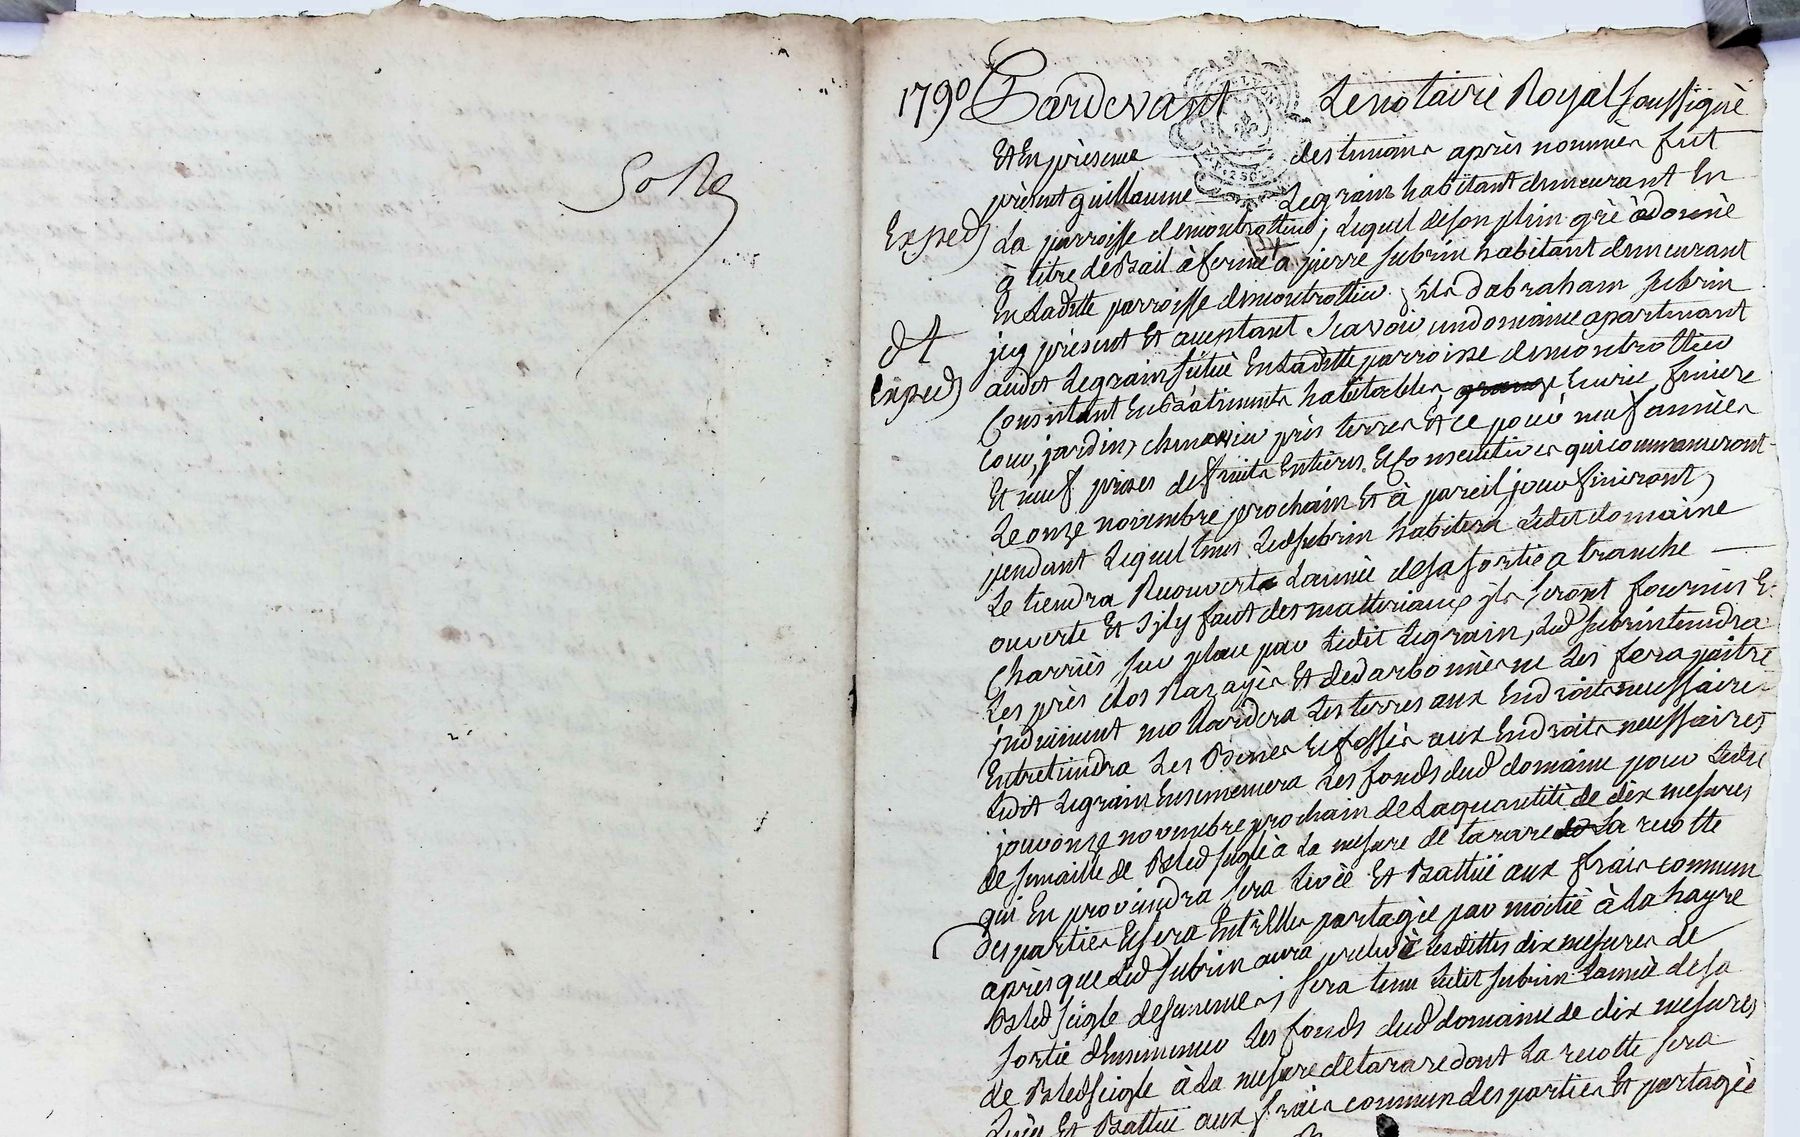 Sol Re
1790 Pardevant Le notaire Royal soussigné
Et En présence des temoins après nommés fut
présent guillaume Legrain habitant demeurant En
Exped
La parroisse demontrottier, Lequel deson plein gré àdonné
à titre deBail àferme a pierre subrin habitant demeurant
En Laditte parroisse demontrottier fils dabraham subrin
jcy présent Et aceptant scavoir undomaine apartenant
Exped
audit Legrain situé En Laditte parroisse demontrottier
Consistant En Batiments habitables, grange Ecurie, feniere
Cour, jardin, chenevier près terres Et ce pour neuf années
Et neuf prises defruits Entieres Et Consecutives qui commanceront
Le onze novembre prochain Et à pareil jour finiront,
pendant Lequel tems Led subrin habitera Ledit domaine
Le tiendra Recouvert Lannée desa sortie a tranche
ouverte Et sily faut des matteriaux jls seront fournis E
Charriés sur place par Ledit Legrain, Led subrin tiendra
Les près clos Razayés Et ne Les fera paitre
induement Les terres aux Endroits necessaires
Entretiendra Les Et fossés aux Endroits necessaires
Ledit Legrain Ensemencera Les fonds dud domaine pour Ledit
jour onze novembre prochain de Laquantité de dix mesures
de semaille de Bled segle à La mesure de tarare La recolte
qui En proviendra sera Levée Et Battüe aux frais commun
des parties Et sera Entrelles partagée par moitié à La hayre
après que Led subrin aura prelevé Lesdittes dix mesures de
Bled seigle desemences, sera tenu Ledit subrin Lannée desa
sortie dEnsemencer Les fonds dud domaine de dix mesures
de Bled seigle à La mesure de tarare dont La recolte sera
Levée Et Battue aux frais commun des parties Et partagée